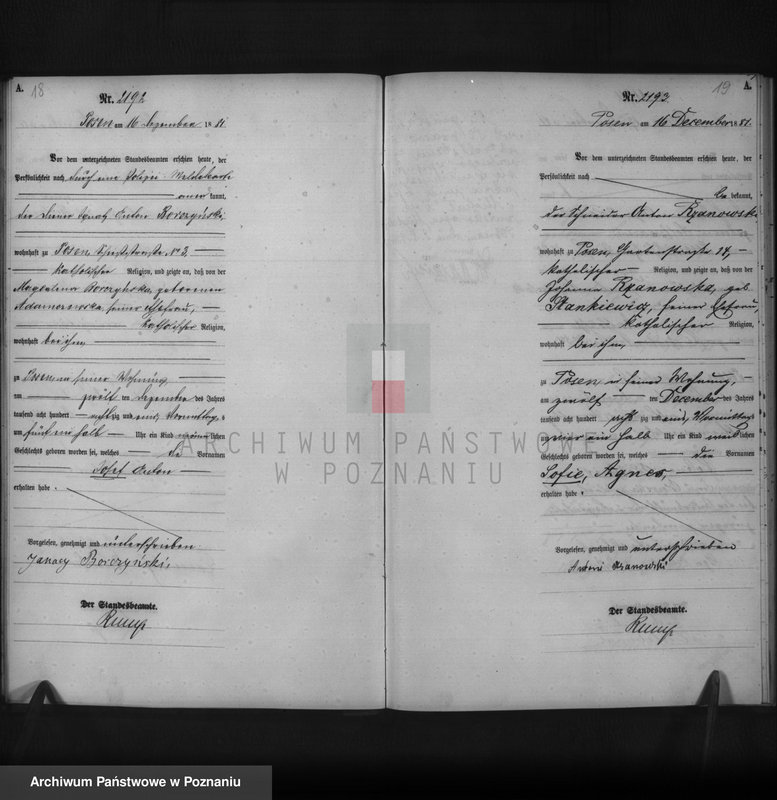 A. 18
Nr. 2192
Posen am 16 Dezember 1881
Vor dem unterzeichneten Standesbeamten erschien heute, der
Persönlichkeit nach durch eine Polizei-Meldekarte
anerkannt,
der Diener Ignatz Anton Borczyński
wohnhaft zu Posen, No 3,
katholischer Religion, und zeigte an, daß von der
Magdalena Borczyńska geborenen
Adamczewska seiner Ehefrau,
katholischer Religion,
wohnhaft bei ihm,
zu Posen in seiner Wohnung
am zwölften Dezember des Jahres
tausend acht hundert achtzig und eins, Vormittags
um fünf ein halb Uhr ein Kind männlichen
Geschlechts geboren worden sei, welches die Vornamen
Josef Anton
erhalten habe.
Vorgelesen, genehmigt und unterschrieben
Ignacy Borczyński,
Der Standesbeamte.
19 A.
Nr. 2193
Posen am 16 December 1881.
Vor dem unterzeichneten Standesbeamten erschien heute, der
Persönlichkeit nach
bekannt,
der Schneider Anton Rzanowski
wohnhaft zu Posen, Gerberstraße 14,
katholischer Religion, und zeigte an, daß von der
Johanna Rzanowska, geb.
Stankiewicz, seiner Ehefrau,
katholischer Religion,
wohnhaft bei ihm,
zu Posen in seiner Wohnung,
am zwölften December des Jahres
tausend acht hundert achtzig und eins, Vormittags
um vier ein halb Uhr ein Kind weiblichen
Geschlechts geboren worden sei, welches die Vornamen
Sofie, Agnes,
erhalten habe
Vorgelesen, genehmigt und unterschrieben
Antoni Rzanowski
Der Standesbeamte.
ARCHIWUM PAŃSTWOWE
W POZNANIU
Archiwum Państwowe w Poznaniu